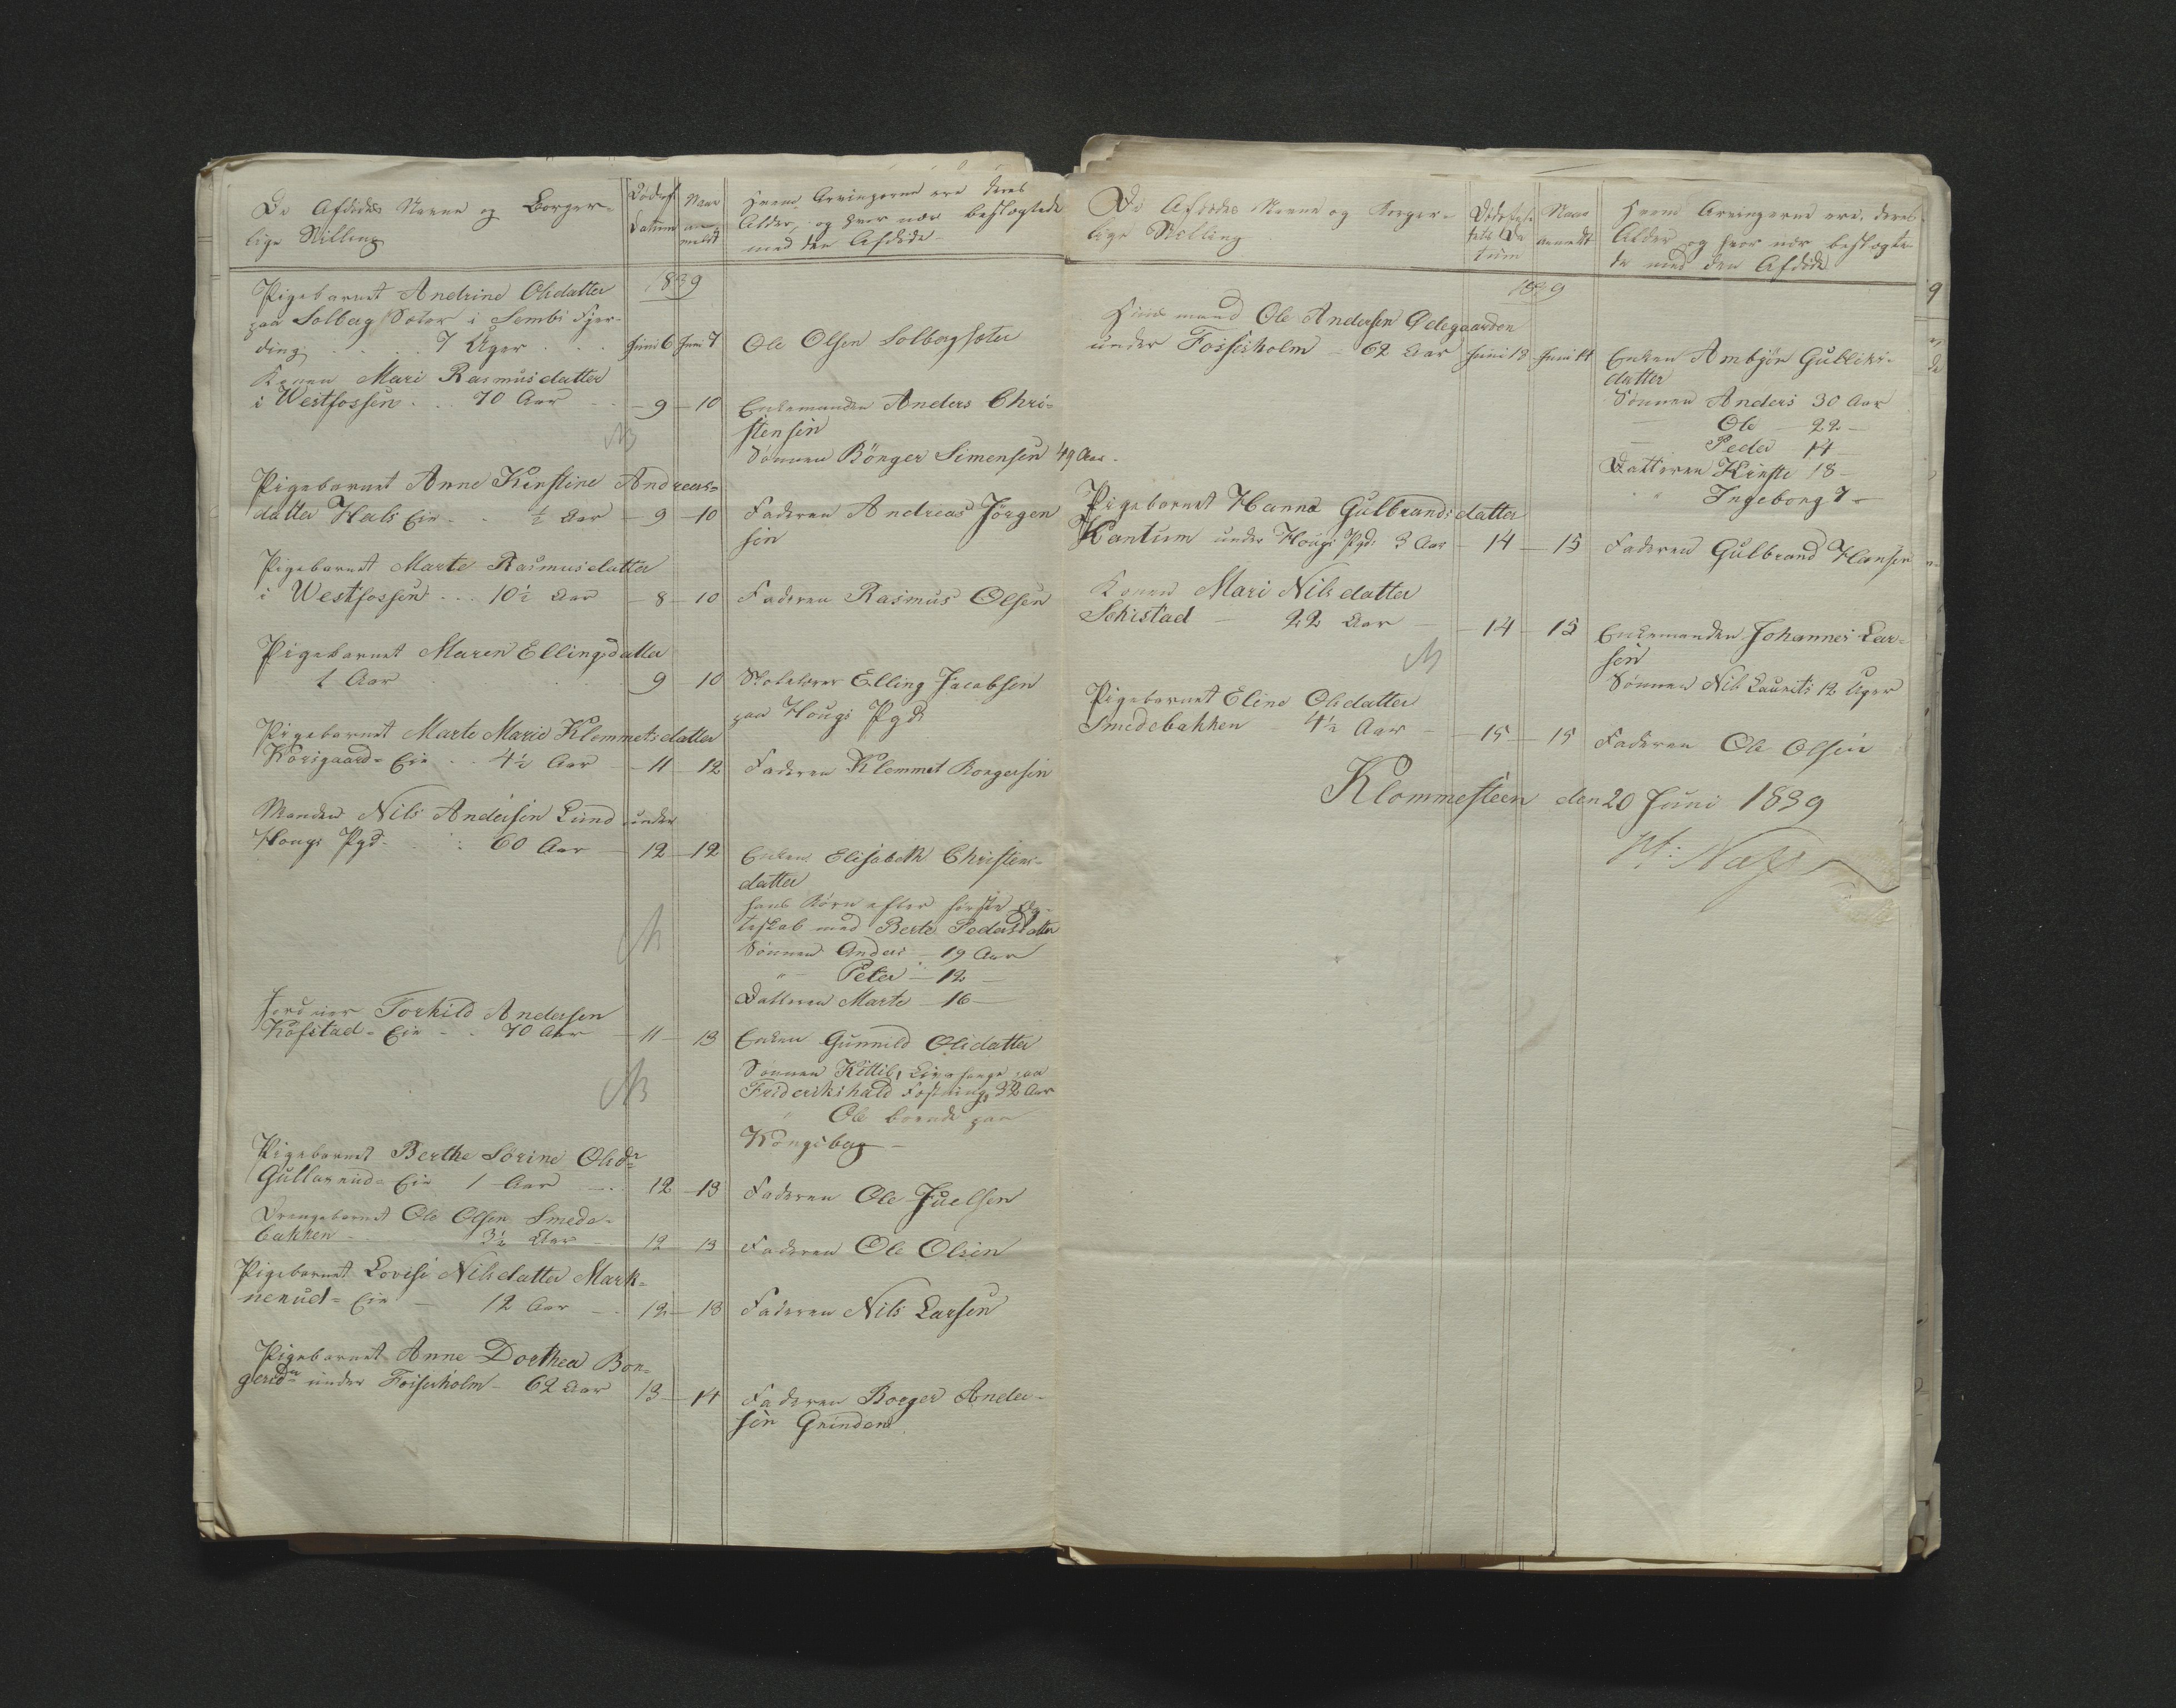 De Afdødes Navne og Borger-
lige Stilling
Dødsf.
Datum
Naar
an-
meldt
Hvem Arvingerne ere deres
Alder, og hvor nær beslægtede
med den Afdøde
1839
Pigebarnet Andrine Olsdatter
paa Solberg Sæter i Sembs Fjer-
ding . . . 7 Uger . . . Juni 6 Juni 7 Ole Olsen Solbergsæter
Konen Mari Rasmusdatter
i Westfossen . . 70 Aar - 9 - 10 Enkemanden Anders Chri-
stensen
Sønnen Börger Simensen 49 Aar.
Pigebarnet Anne Kirstine Andreas-
datter Hals Eie . . ½ Aar - 9 - 10 Faderen Andreas Jörgen
sen
Pigebarnet Marte Rasmusdatter
i Westfossen . . . 10½ Aar - 8 - 10 Faderen Rasmus Olsen
Pigebarnet Maren Ellingsdatter
1 Aar 9 - 10 Skolelærer Elling Jacobsen
paa Hougs Pgd
Pigebarnet Marte Marie Klemmetsdatter
Korsgaard- Eie . . 4½ Aar - 11 - 12 Faderen Klemmet Borgersen
Manden Nils Andersen Lund under
Hougs Pgd. . : 60 Aar - 12 - 12 Enken Elisabeth Christens-
datter
hans Børn efter første Æg-
teskab med Berte Pedersdatter
Sønnen Anders - 19 Aar
" - Peter - 12 -
Datteren Marte - 16 -
Torkild Andersen
Kofstad - Eie - . 70 Aar - 11 - 13 Enken Gunnild Olsdatter
Sønnen Kittil, Livsfange paa
Friderickshald Fæstning, 32 Aar
" Ole boende paa
Kongsberg -
Pigebarnet Berthe Sorine Olsdr
Gullerud- Eie 1 Aar - . 12 - 13 Faderen Ole Juelsen
Drengebarnet Ole Olsen Smede-
bakken - 3½ Aar - 12 - 13 Faderen Ole Olsen
Pigebarnet Lovise Nilsdatter Mark-
nerud - Eie - 12 Aar - . 12 - 13 Faderen Nils Larsen
Pigebarnet Anne Dorthea Bor-
gersdr under Fossesholm - 62 Aar 13 - 14 Faderen Borger Ander-
sen Grinden
De Afdødes Navne og Borger-
lige Stilling
Dødsfal-
dets Da
tum
Naar
anmeldt
Hvem Arvingerne ere, deres
Alder og hvor nær beslægte-
de med den Afdøde
1839
Huusmand Ole Andersen Ødegaarden
under Fossesholm - 62 Aar Juni 13 Juni 14 Enken Ambjör Gulliks-
datter
Sønnen Anders 30 Aar
- Ole - 22 -
- Peder 14 -
Datteren Kirsti 18 -
" Ingeborg 7 -
Pigebarnet Hanna Gulbrandsdatter
Kantum under Hougs Pgd. 3 Aar - 14 - 15 Faderen Gulbrand Hansen
Konen Mari Nilsdatter
Schistad - 22 Aar - 14 - 15 Enkemanden Johannes Lar-
sen
Sønnen Nils Laurits 12 Uger
Pigebarnet Eline Olsdatter
Smedebakken - 4½ Aar - - 15 - 15 Faderen Ole Olsen
Klommesteen den 20 Juni 1839